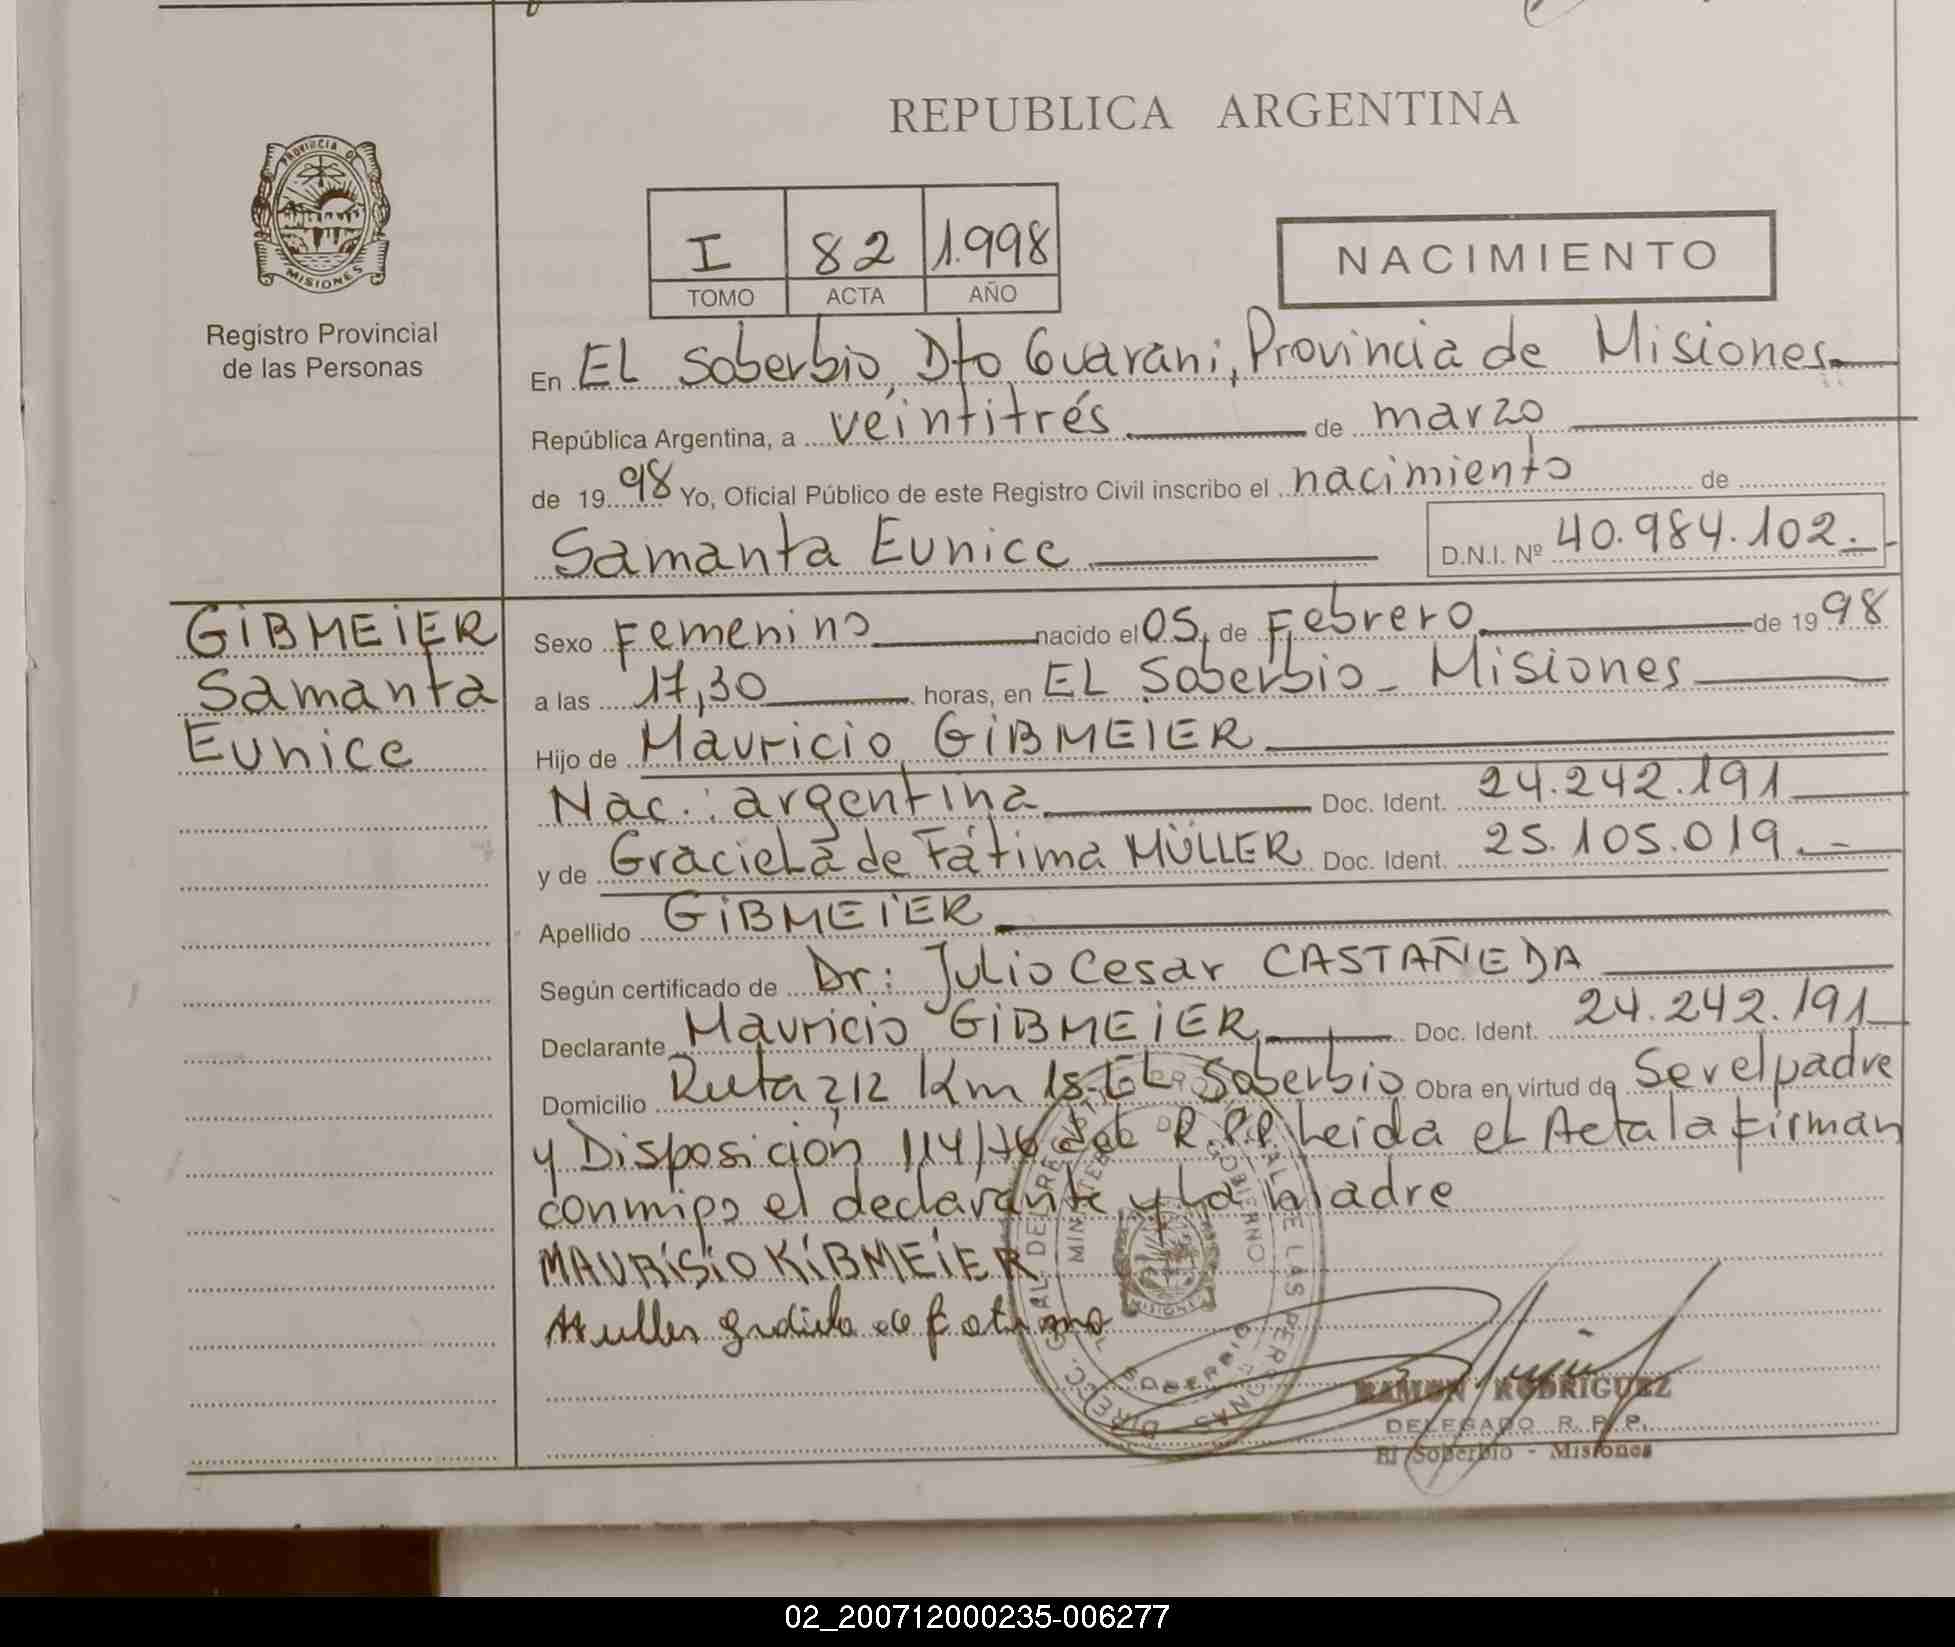 REPUBLICA ARGENTINA
PROVINCIA DE
MISIONES
Registro Provincial
de las Personas
I 82 1.998
TOMO ACTA AÑO
NACIMIENTO
En EL Soberbio, Dto Guarani, Provincia de Misiones
República Argentina, a veintitrés de marzo
de 1998 Yo, Oficial Público de este Registro Civil inscribo el nacimiento de
Samanta Eunice D.N.I. Nº 40.984.102.-
GiBMEiER
Samanta
Eunice
Sexo Femenino nacido el 05, de Febrero de 1998
a las 17,30 horas, en EL Soberbio - Misiones
Hijo de Mauricio GiBMEIER
Nac.: argentina Doc. Ident. 24.242.191
y de Graciela de Fátima MÜLLER Doc. Ident. 25.105.019.-
Apellido GiBMEiER
Según certificado de Dr: Julio Cesar CASTAÑEDA
Declarante Mauricio GiBMEiER Doc. Ident. 24.242.191
Domicilio Ruta 212 Km 15-EL Soberbio Obra en virtud de Ser el padre
y Disposición 114/76 del R.P.P. Leida el Acta la firman
conmigo el declarante y la madre
MAURiSiO KiBMEiER
Muller de fatima
RAMON RODRIGUEZ
DELEGADO R. P. P.
El Soberbio - Misiones
02_200712000235-006277